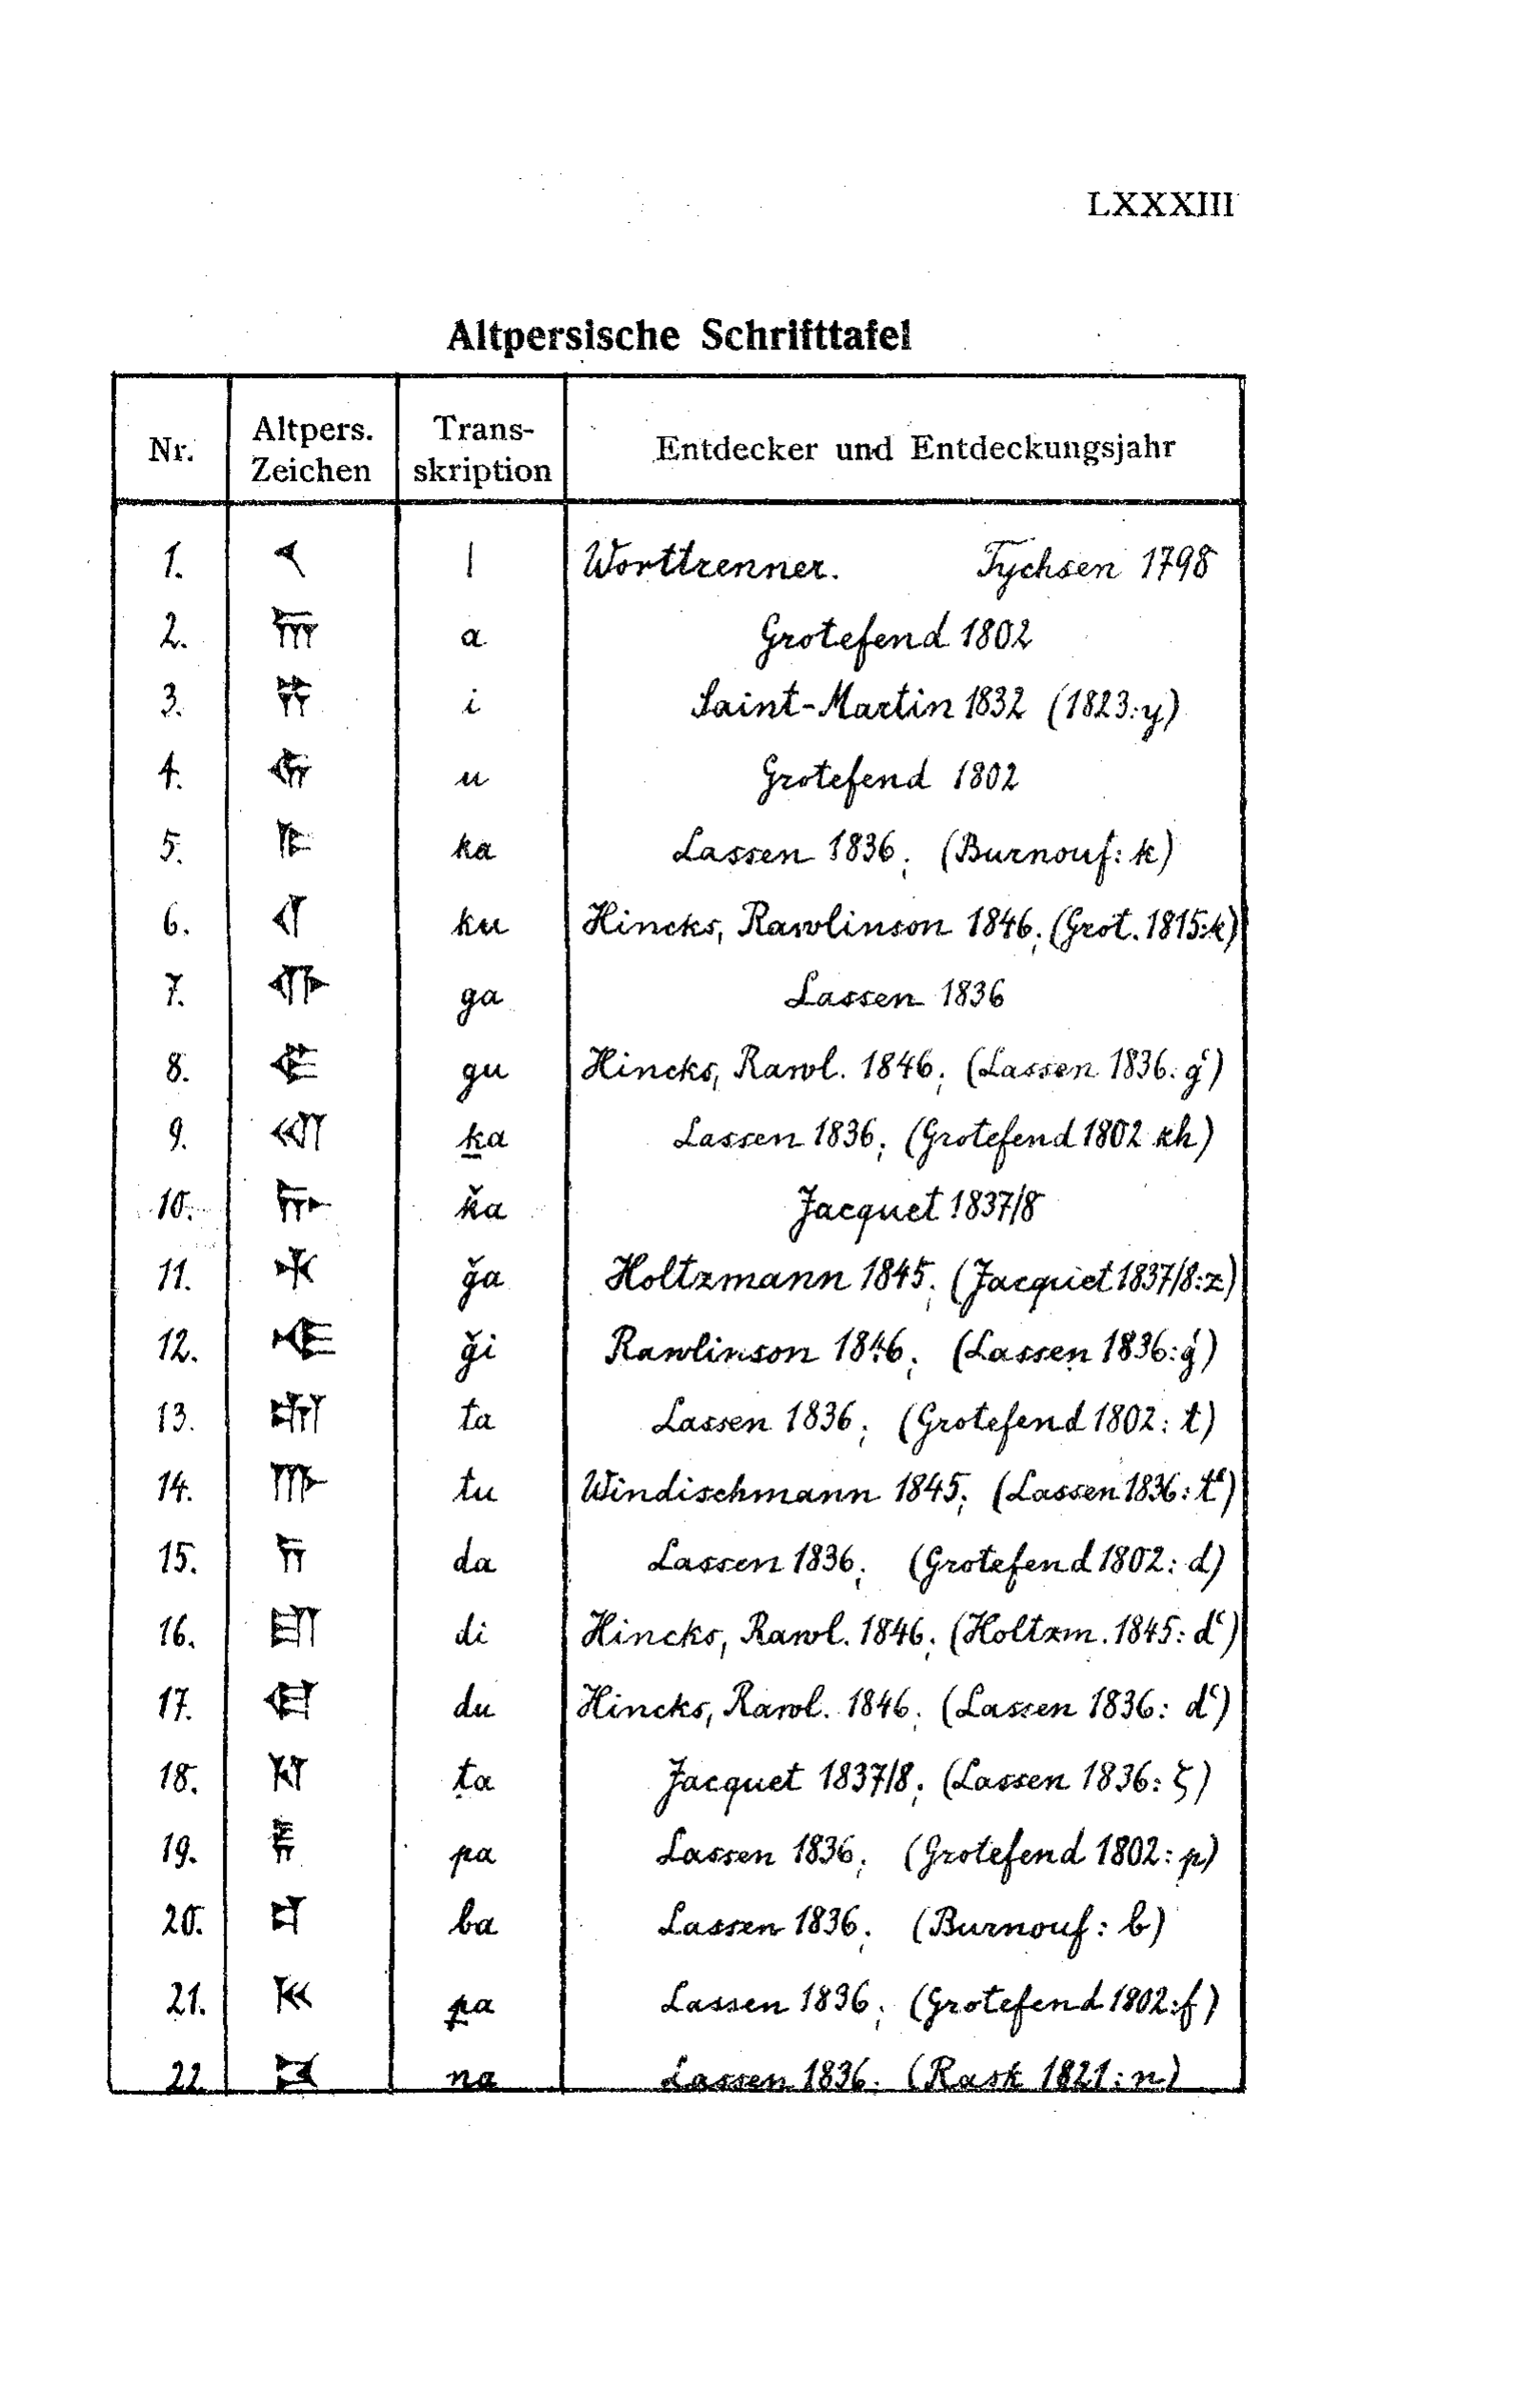 LXXXIII
Altpersische Schrifttafel
Nr. Altpers. Zeichen Transkription Entdecker und Entdeckungsjahr
1. 𐏐 | Worttrenner. Tychsen 1798
2. 𐎠 a Grotefend 1802
3. 𐎡 i Saint-Martin 1832 (1823:y)
4. 𐎢 u Grotefend 1802
5. 𐎣 ka Lassen 1836; (Burnouf: k)
6. 𐎤 ku Hincks, Rawlinson 1846; (Grot. 1815:k)
7. 𐎥 ga Lassen 1836
8. 𐎦 gu Hincks, Rawl. 1846; (Lassen 1836: gʿ)
9. 𐎧 ḵa Lassen 1836; (Grotefend 1802 kh)
10. 𐎨 ǩa Jacquet 1837/8
11. 𐎩 ǧa Holtzmann 1845; (Jacquet 1837/8:z)
12. 𐎪 ǧi Rawlinson 1846; (Lassen 1836:ǵ)
13. 𐎫 ta Lassen 1836; (Grotefend 1802: t)
14. 𐎬 tu Windischmann 1845; (Lassen 1836: tʿ)
15. 𐎭 da Lassen 1836; (Grotefend 1802: d)
16. 𐎮 di Hincks, Rawl. 1846; (Holtzm. 1845: dʿ)
17. 𐎯 du Hincks, Rawl. 1846; (Lassen 1836: dʿ)
18. 𐎰 ṭa Jacquet 1837/8; (Lassen 1836: ζ)
19. 𐎱 pa Lassen 1836; (Grotefend 1802: p)
20. 𐎲 ba Lassen 1836; (Burnouf: b)
21. 𐎳 p̱a Lassen 1836; (Grotefend 1802:f)
22. 𐎴 na Lassen 1836; (Rask 1821: n)